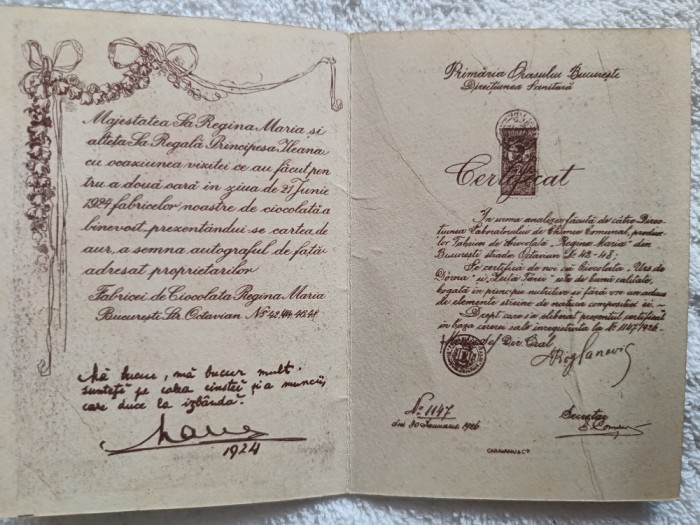 Majestatea Sa Regina Maria și
alteța Sa Regală Principesa Ileana
cu ocaziunea vizitei ce au făcut pen
tru a două oară in ziua de 21 Iunie
1924 fabricelor noastre de ciocolată a
binevoit prezentându-i-se cartea de
aur, a semna autograful de față
adresat proprietarilor
Fabricei de Ciocolata Regina Maria
București Str. Octavian Nº 42.44.46.48
mă bucur mult
sunteți pe calea cinstei și a muncii
care duce la izbândă.
Maria
1924
Primăria Orasului București
Direcțiunea Sanitară
Certificat
In urma analizei făcută de către Direc
țiunea Laboratorului de Chimie Comunal, produse
lor Fabricei de Ciocolata „Regina Maria" din
București strada Octavian Nº 42-48;
Se certifica de noi că Ciocolata „Urs de
Dorna" și „Lutea Tanti" este de bună calitate,
bogată in principii nutritive și fără vre un adaus
de elemente streine de natura compozitiei ei.-
-Drept care s'a elibrat prezentul certificat
in baza cererei sale inregistrata la Nº 1147/926
Medic Șef Dir. Gral
Nº 1147
din 30 Ianuarie 1926
Secretar
CARAVANU & Cº